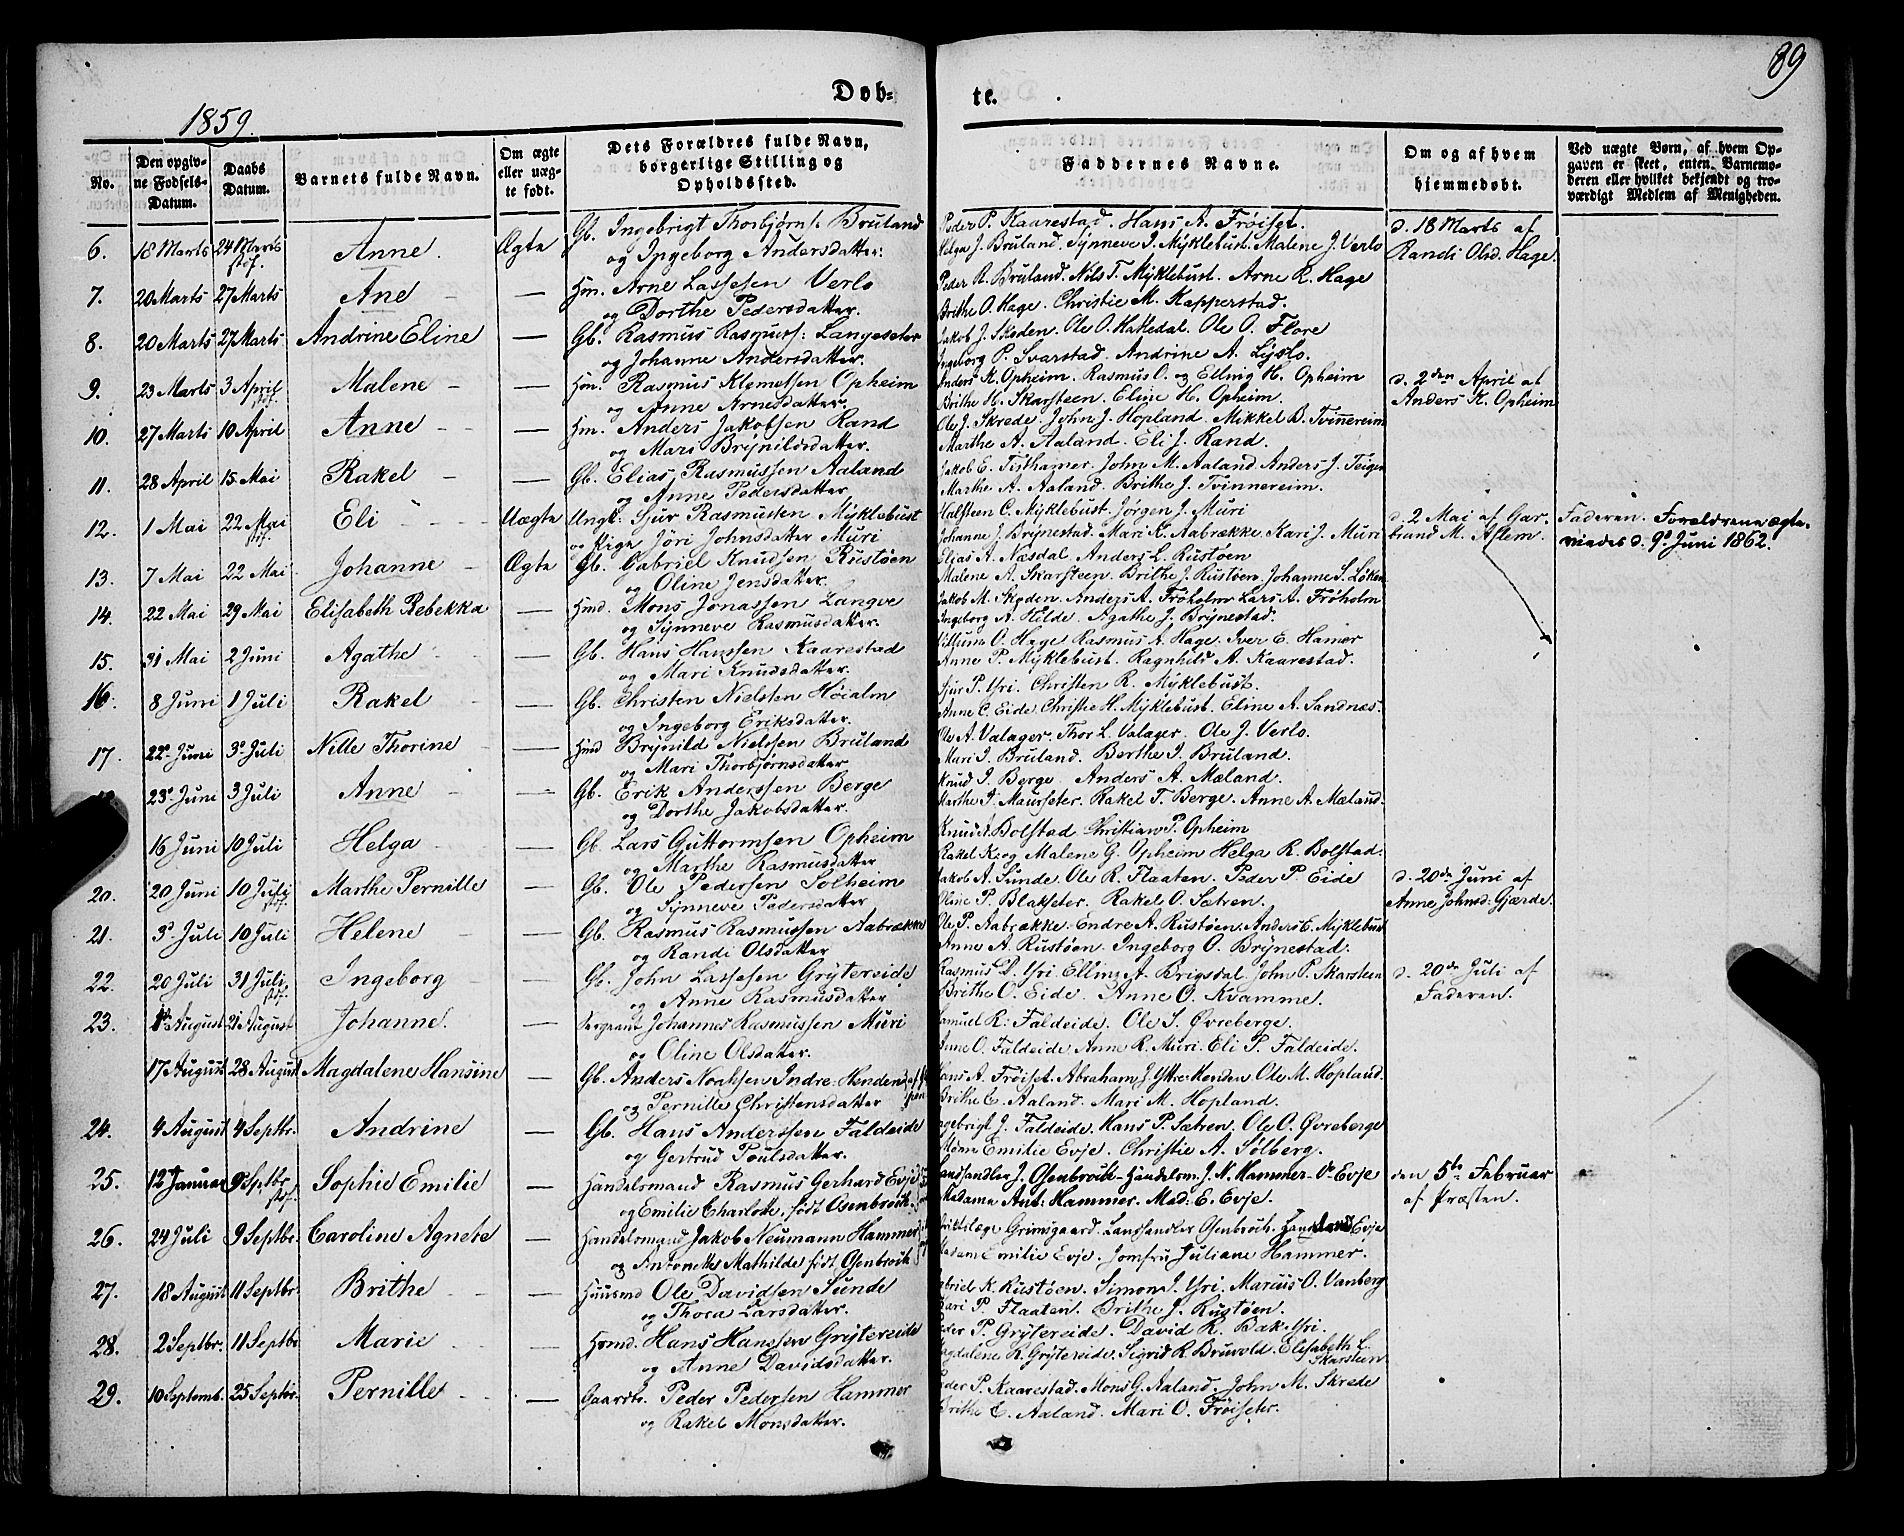 89
1859.
Døb-
te.
No.
Den opgiv-
ne Fødsels-
Datum.
Daabs
Datum.
Barnets fulde Navn.
Om ægte
eller uæg-
te født.
Dets Forældres fulde Navn,
borgerlige Stilling og
Opholdssted.
Faddernes Navne.
Om og af hvem
hjemmedøbt.
Ved uægte Børn, af hvem Op-
gaven er skeet, enten Barnemo-
deren eller hvilket bekjendt og tro-
værdigt Medlem af Menigheden.
6. 18 Marts 24 Marts Anne. Ægte Gb. Ingebrigt Thorbjørns. Bruland
og Ingeborg Andersdatter:
Peder P. Kaarestad. Hans A. Frøiset.
Helga J. Bruland. Synneve I. Myklebust. Malene J. Verlo
d. 18 Marts af
Randi Olsd. Hage.
7. 20 Marts 27 Marts Ane — Hm. Arne Lassesen Verlo
og Dorthe Pedersdatter.
Peder R. Bruland. Nils T. Myklebust. Arne R. Hage
Brithe O. Hage. Christie M. Kapperstad.
8. 20 Marts 27 Marts Andrine Eline — Gb. Rasmus Rasmuss: Langeseter
og Johanne Andersdatter.
Jakob J. Skøden. Ole O. Hakedal. Ole O. Flore
Ingeborg P. Svarstad. Andrine A. Lyslo.
9. 23 Marts 3 April Malene — Hm. Rasmus Klemetsen Opheim
og Anne Arnesdatter.
Anders K. Opheim. Rasmus O. og Elling H. Opheim
Brithe H. Skarsteen. Eline H. Opheim.
d. 2den April af
Anders K. Opheim
10. 27 Marts 10 April Anne — Hm. Anders Jakobsen Rand
og Mari Brynildsdatter.
Ole J. Skrede John J. Hopland. Mikkel B. Tvinnereim
Marthe A. Aaland. Eli J. Rand.
11. 28 April 15 Mai Rakel — Gb. Elias Rasmussen Aaland
og Anne Pedersdatter
Jakob E. Tisthamer. John M. Aaland Anders J. Teigen
Marthe A. Aaland. Brithe J. Tvinnereim.
12. 1 Mai 22 Mai Eli Uægte Ungk: Sjur Rasmussen Myklebust
og Pige Jøri Johnsdatter Muri
Halsten C. Myklebust. Jørgen J. Muri
Johanne J. Brynestad. Mari K. Aabrække Kari J. Muri
d. 2 Mai af Gar-
brand M. Aflem.
Faderen. Forældrene ægte-
viedes d. 9de Juni 1862.
13. 7 Mai 22 Mai Johanne Ægte Gb. Gabriel Knudsen Rustøen
og Oline Jensdatter.
Elias A. Næsdal. Anders L. Rustøen
Malene A. Skarsteen. Brithe J. Rustøen. Johanne S. Løken
14. 22 Mai 29 Mai Elisabeth Rebekka — Hmd. Mons Jonassen Langve
og Synneve Rasmusdatter.
Jakob M. Skøden. Anders A. Frøholm Lars A. Frøholm
Ingeborg A. Hilde. Agathe J. Brynestad.
15. 31 Mai 2 Juni Agathe — Gb. Hans Hanssen Kaarestad
og Mari Knudsdatter.
O. Hage Rasmus A. Hage. Iver E. Hamer
Anne P. Myklebust. Ragnhild A. Kaarestad.
16. 8 Juni 1 Juli Rakel — Gb. Christen Nielsen Høialm
og Ingeborg Eriksdatter.
Sjur P. Yri. Christen R. Myklebust.
Anne C. Eide. Christie H. Myklebust. Eline A. Sandnes.
17. 22de Juni 3de Juli Nille Thorine — Hmd Brynild Nielssen Bruland
og Mari Thorbjørnsdatter
Ole A. Valager. Thor L. Valager. Ole J. Verlo.
Mari I. Bruland. Berthe I. Bruland.
23de Juni 3 Juli Anne — Gb. Erik Anderssen Berge
og Dorthe Jakobsdatter.
Knud I. Berge. Anders A. Mæland.
Marthe I. Maurseter. Rakel T. Berge. Anne A. Mæland.
16 Juni 10 Juli Helga — Gb. Lars Guttormsen Opheim
og Marthe Rasmusdatter
Knud A. Bolstad Christian P. Opheim
Rakel K. og Malene G. Opheim Helga R. Bolstad.
20. 20 Juni 10 Juli Marthe Pernille — Gb. Ole Pedersen Solheim
og Synneve Pedersdatter
Jakob A. Sunde. Ole R. Flaaten. Peder P. Eide
Oline P. Blakseter. Rakel O. Sætren.
d. 20de Juni af
Anne Johnsd. Gjærde.
21. 3de Juli 10 Juli Helene — Gb. Rasmus Rasmussen Aabrække
og Randi Olsdatter
Ole P. Aabrække. Endre A. Rustøen. Anders C. Myklebust
Anne A. Rustøen. Ingeborg O. Brynestad.
22. 20 Juli 31 Juli Ingeborg — Gb. John Lassesen Grytereide
og Anne Rasmusdatter
Rasmus D. Yri Elling A. Brigsdal. John P. Skarsteen
Brithe O. Eide. Anne O. Kvamme.
d. 20de Juli af
Faderen.
23. August 21 August Johanne. — Sergeant Johannes Rasmussen Muri
og Oline Olsdatter.
Samuel R. Faldeide. Ole S. Øvreberge.
Anne O. Faldeide. Anne R. Muri. Eli P. Faldeide.
17 August 28 August Magdalene Hansine — Gb. Anders Noahsen Indre-Henden
og Pernille Christensdatter
Hans A. Frøiset. Abraham J. Yttre-Henden Ole M. Hopland.
Brithe E. Aaland. Mari M. Hopland.
24. 4 August 4 Septbr. Andrine — Gb. Hans Anderssen Faldeide
og Gertrud Poulsdatter.
Ingebrigt J. Faldeide. Hans P. Sætren. Ole O. Øvreberge
Emilie Evje. Christie A. Solberg.
25. 12te Januar 9 Septbr Sophie Emilie — Handelsmand Rasmus Gerhard Evje
og Emilie Charlotte, født Osenbroch.
Landhandler J. Osenbroch - Handelsm. J. N. Hammer - O. Evje
Madame Ant. Hammer. Mad: E. Evje.
den 5te Februar
af Præsten.
26. 24 Juli 9 Septbr. Caroline Agnete — Handelsmand Jakob Neumann Hammer
og Antonette Mathilde født Osenbroch.
Grimsgaard. Landhandler Osenbroch. Evje
Madam Emilie Evje. Jomfru Juliane Hammer.
27. 18 August 11 Septbr. Brithe — Huusmd Ole Davidsen Sunde
og Thora Larsdatter.
Gabriel K. Rustøen. Simon J. Yri. Marcus O. Vanberg
Mari P. Flaaten. Brithe J. Rustøen.
28. 2 Septbr. 11 Septbr Marie — Hsmd. Hans Hanssen Grytereide
og Anne Davidsdatter.
Peder P. Grytereide. David R. Bak-Yri.
Magdalene R. Grytereide. Sigrid R. Bruvold. Elisabeth C.
Skarsteen
29. 10 Septemb. 25 Septbr. Pernille — Gaardbr. Peder Pedersen Hammer
og Rakel Monsdatter.
Peder P. Kaarestad. Mons G. Aaland. John M. Skrede
Brithe E. Aaland. Mari O. Frøiseter.